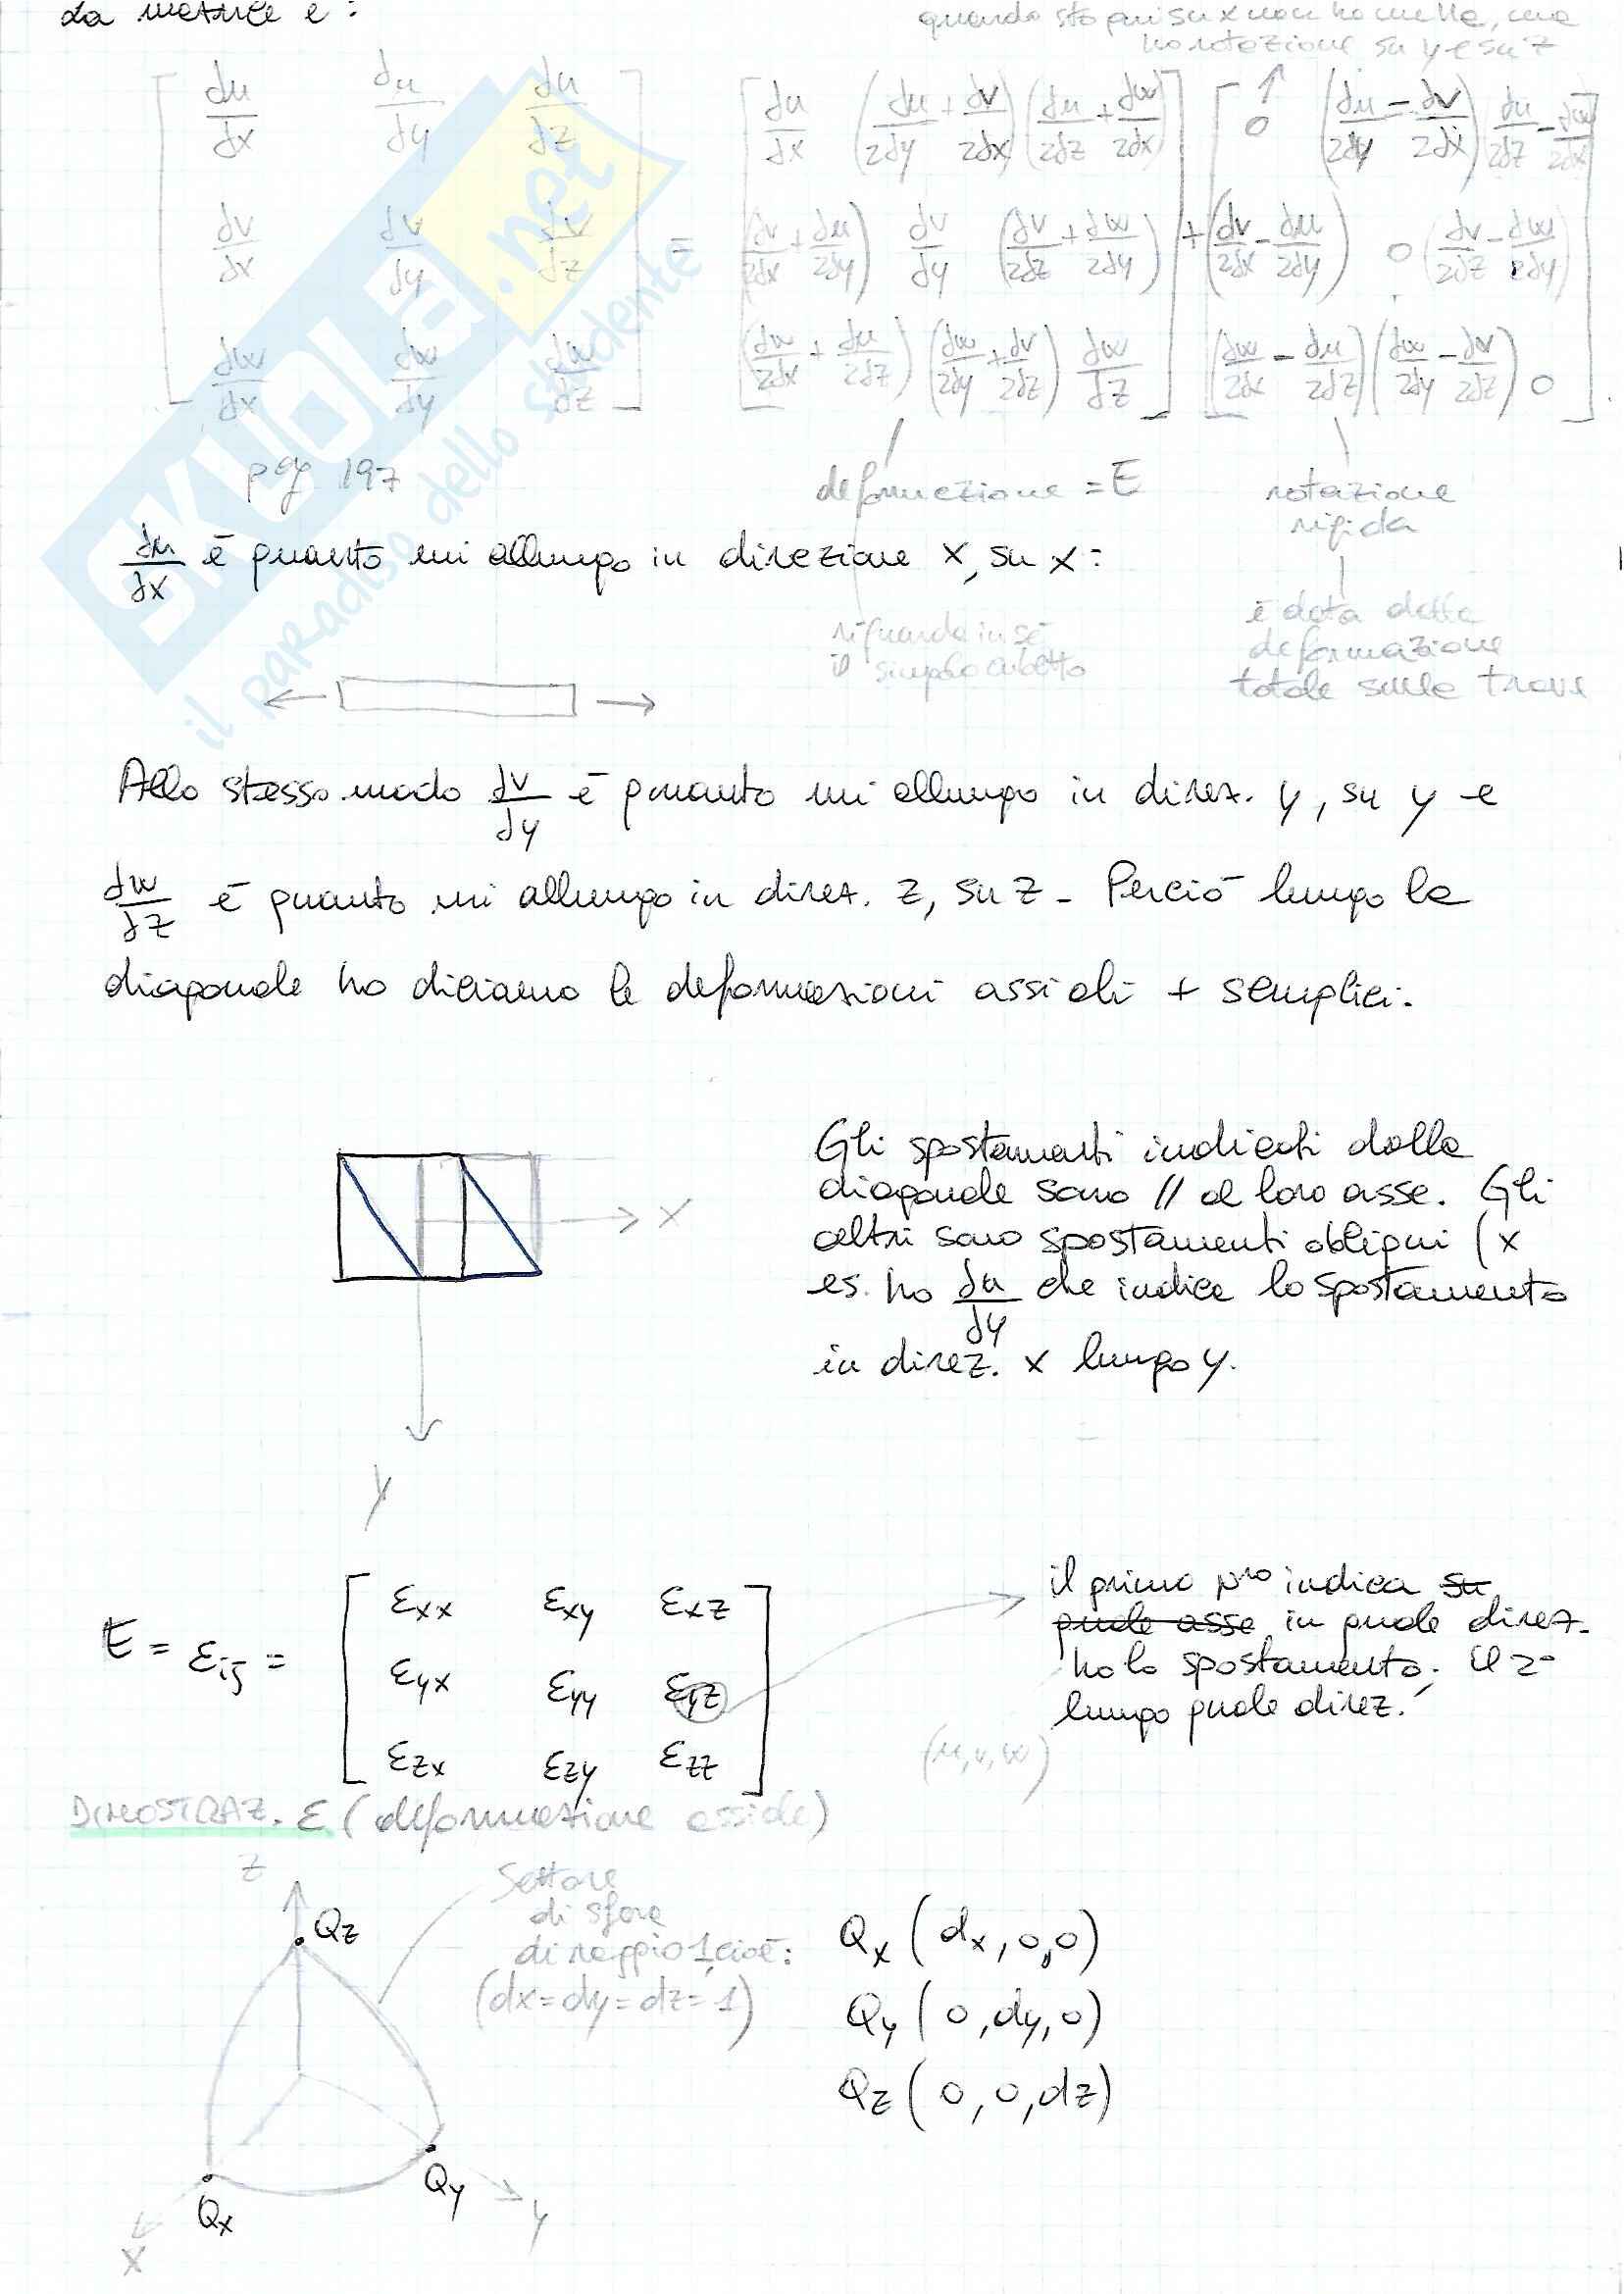 La matrice è:
quando sto qui su x non ho nulla, ma
ho rotazione su y e su z
du/dx du/dy du/dz
dv/dx dv/dy dv/dz
dw/dx dw/dy dw/dz
=
du/dx (du/2dy + dv/2dx) (du/2dz + dw/2dx)
(dv/2dx + du/2dy) dv/dy (dv/2dz + dw/2dy)
(dw/2dx + du/2dz) (dw/2dy + dv/2dz) dw/dz
+
0 (du/2dy - dv/2dx) du/2dz - dw/2dx
(dv/2dx - du/2dy) 0 (dv/2dz - dw/2dy)
(dw/2dx - du/2dz) (dw/2dy - dv/2dz) 0
pag 197
deformazione = E
rotazione
rigida
du/dx è quanto mi allungo in direzione x, su x:
riguarda in sé
il singolo cubetto
è data dalla
deformazione
totale sulla trave
Allo stesso modo dv/dy è quanto mi allungo in direz. y, su y e
dw/dz è quanto mi allungo in direz. z, su z - Perciò lungo la
diagonale ho diciamo le deformazioni assiali + semplici.
Gli spostamenti indicati dalla
diagonale sono // al loro asse. Gli
altri sono spostamenti obliqui (x
es. ho du/dy che indica lo spostamento
in direz. x lungo y.
x
y
E = εij =
εxx εxy εxz
εyx εyy εyz
εzx εzy εzz
il primo nro indica su
quale asse in quale direz.
ho lo spostamento. il 2°
lungo quale direz.
(u,v,w)
DIMOSTRAZ. ε (deformazione assiale)
z
Settore
di sfera
di raggio 1, cioè:
(dx=dy=dz=1)
Qz
Qx (dx,0,0)
Qy (0,dy,0)
Qz (0,0,dz)
Qx
Qy
x
y
SKUOLA.net
il paradiso dello studente